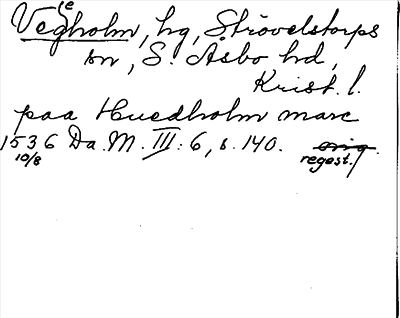 Veg(eholm, hg, Strövelstorps
sn, S. Åsbo hd,
Krist. l.
paa Huedholm marc
1536 Da. M. III: 6, s. 140. orig.
10/8 regest.